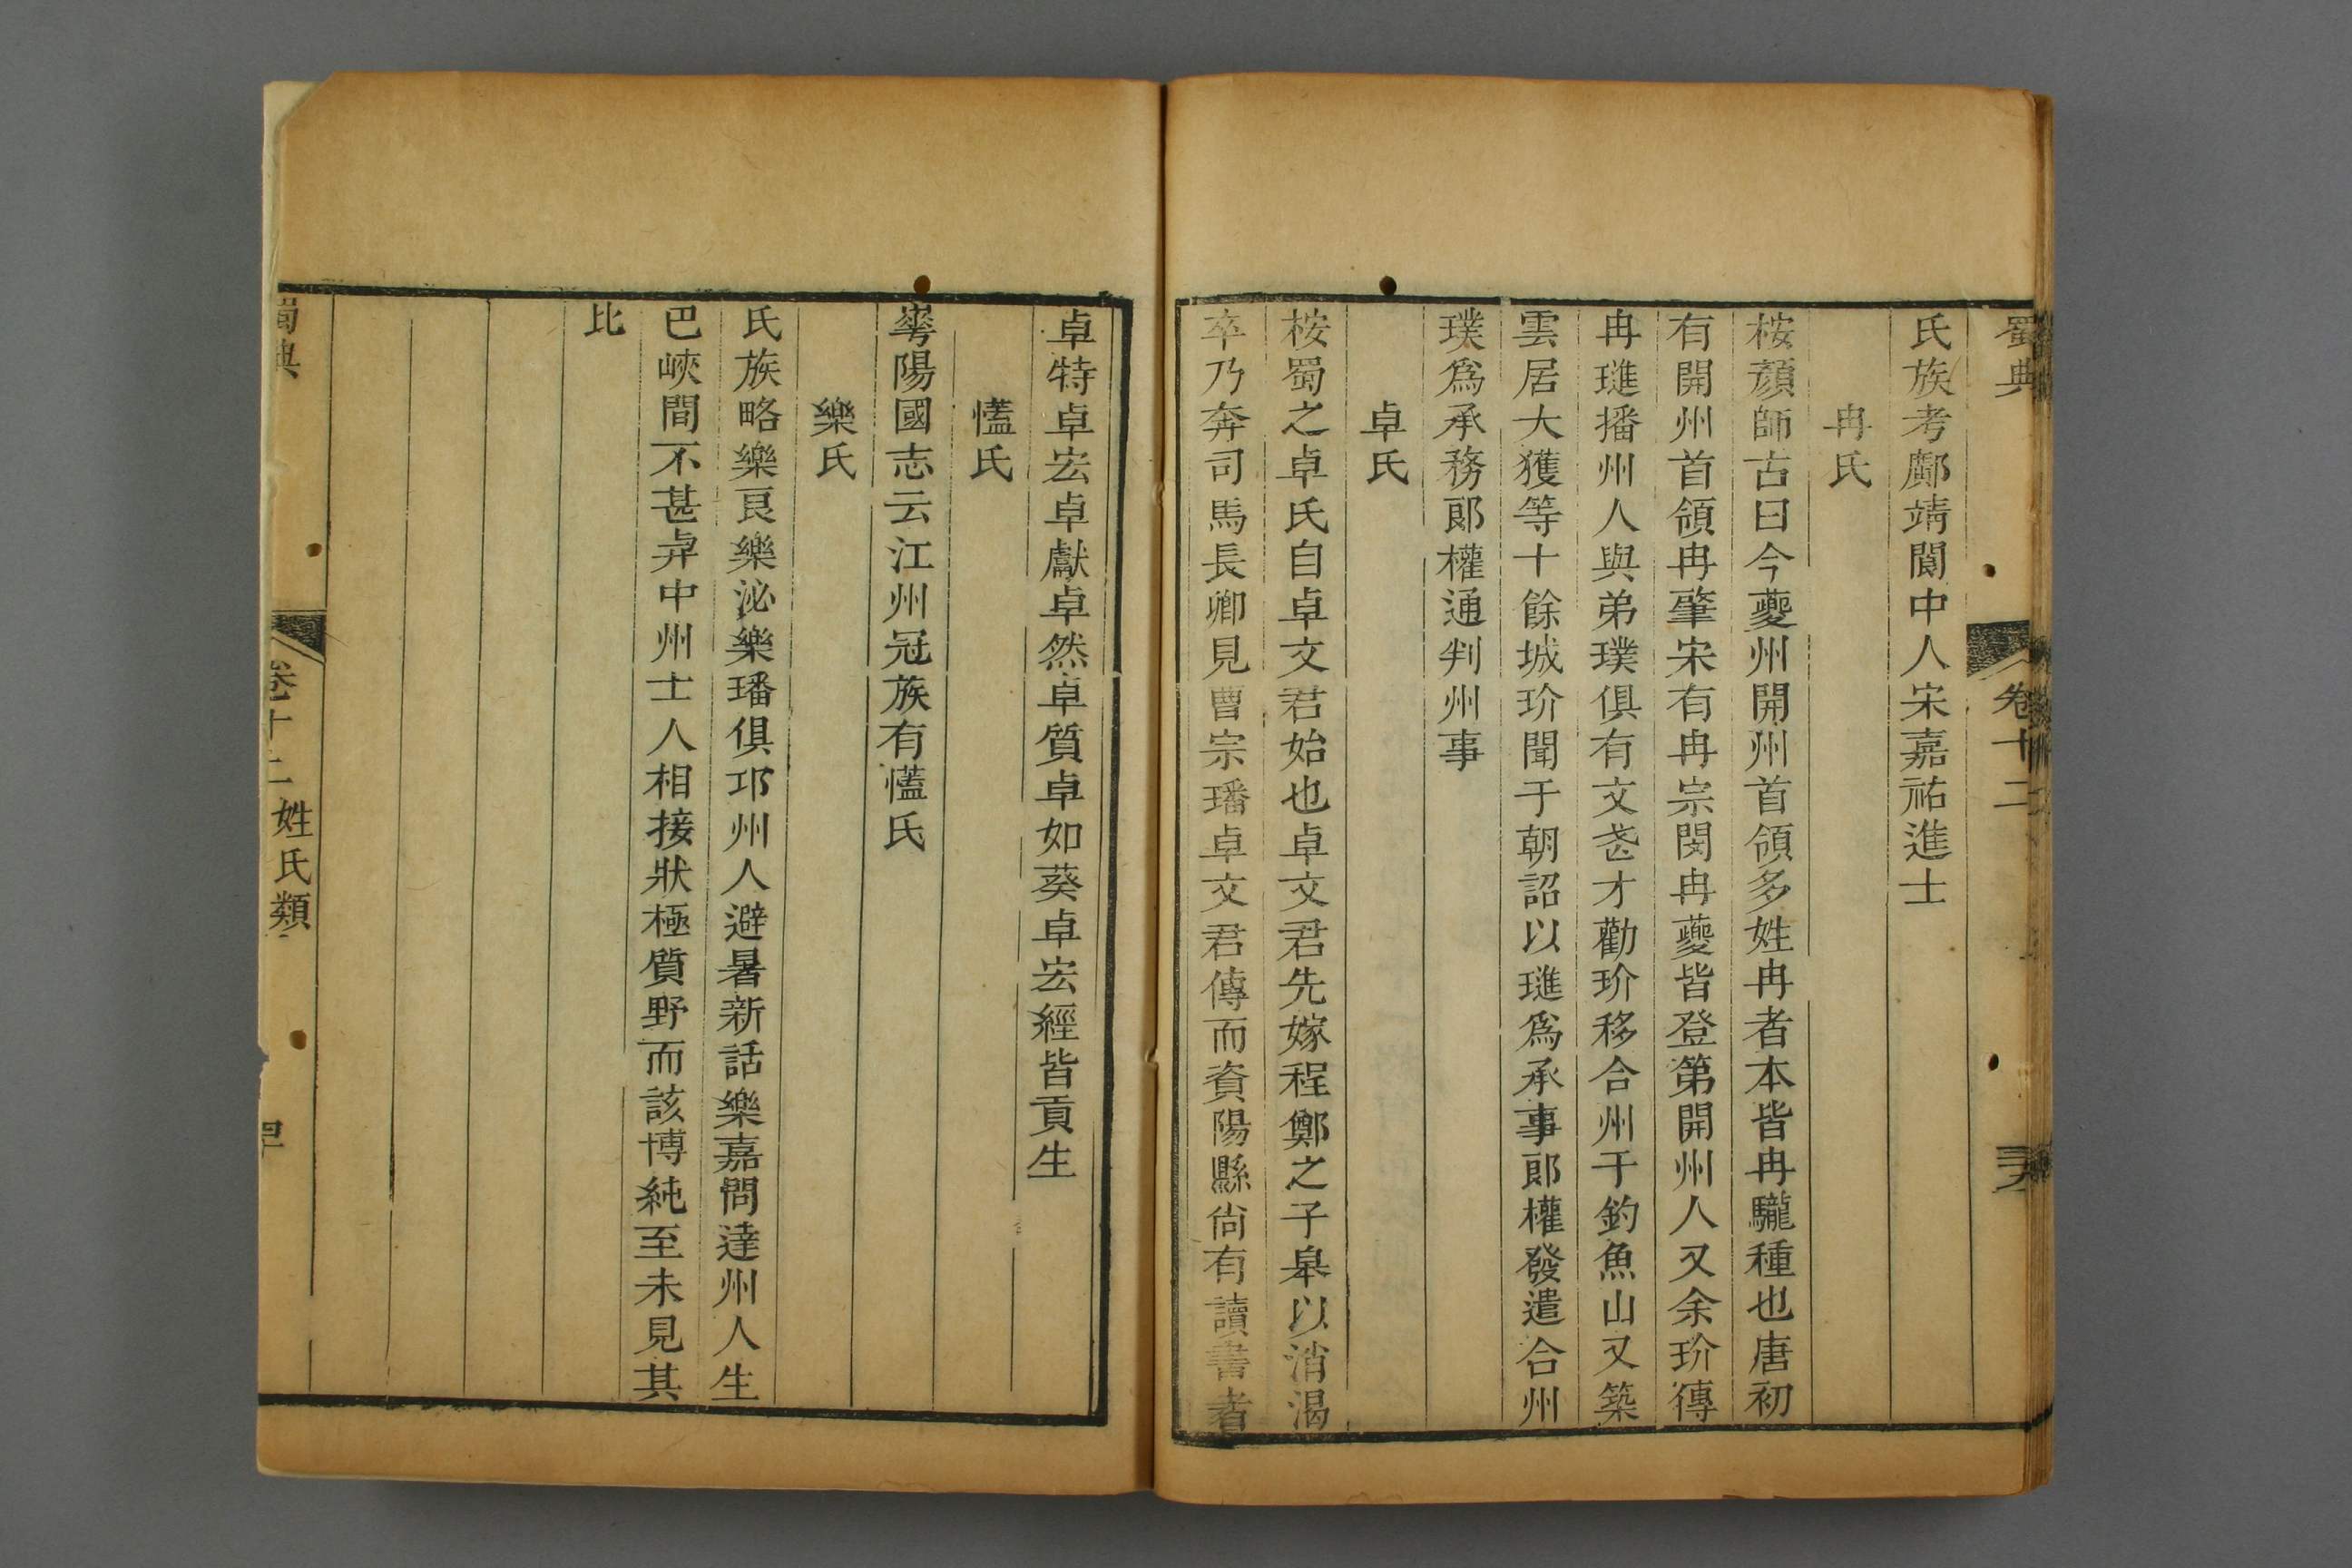 蜀典 卷十二
氏族考鄺靖閬中人宋嘉祐進士
冉氏
桉顏師古曰今夔州開州首領多姓冉者本皆冉駹種也唐初
有開州首領冉肇宋有冉宗閔冉夔皆登第開州人又余玠傳
冉璡播州人與弟璞俱有文武才勸玠移合州于釣魚山又築
雲居大獲等十餘城玠聞于朝詔以璡爲承事郎權發遣合州
璞爲承務郎權通判州事
卓氏
桉蜀之卓氏自卓文君始也卓文君先嫁程鄭之子皋以消渴
卒乃奔司馬長卿見曹宗璠卓文君傳而資陽縣尙有讀書者
卓特卓宏卓獻卓然卓質卓如葵卓宏經皆貢生
𢢔氏
華陽國志云江州冠族有𢢔氏
樂氏
氏族略樂良樂泌樂璠俱邛州人避暑新話樂嘉問達州人生
巴峽間不甚與中州士人相接狀極質野而該博純至未見其
比
蜀典 卷十二 姓氏類